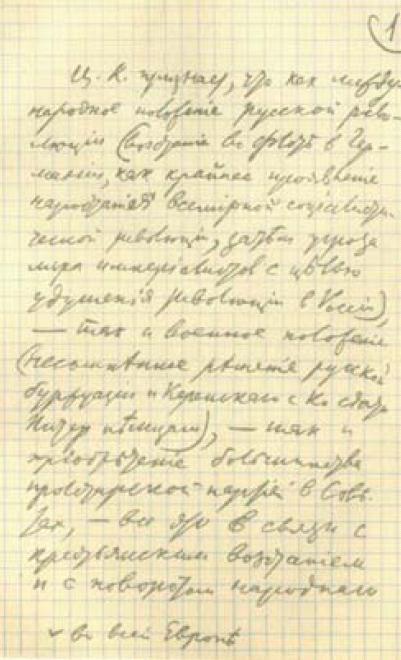 1
Ц. К. признает, что как между-
народное положение русской рево-
люции (восстание во флоте в Гер-
мании, как крайнее проявление
нарастания всемирной социалисти-
ческой революции, затѣм угроза
мира империалистов с цѣлью
удушения революции в России),
— так и военное положение
(несомнѣнное рѣшение русской
буржуазии и Керенского с Ко сдать
Питер нѣмцам), — так и
приобрѣтение большинства
пролетарской партией в Совѣ-
тах, — все это в связи с
крестьянским возстанием
и с поворотом народного
во всей Европѣ